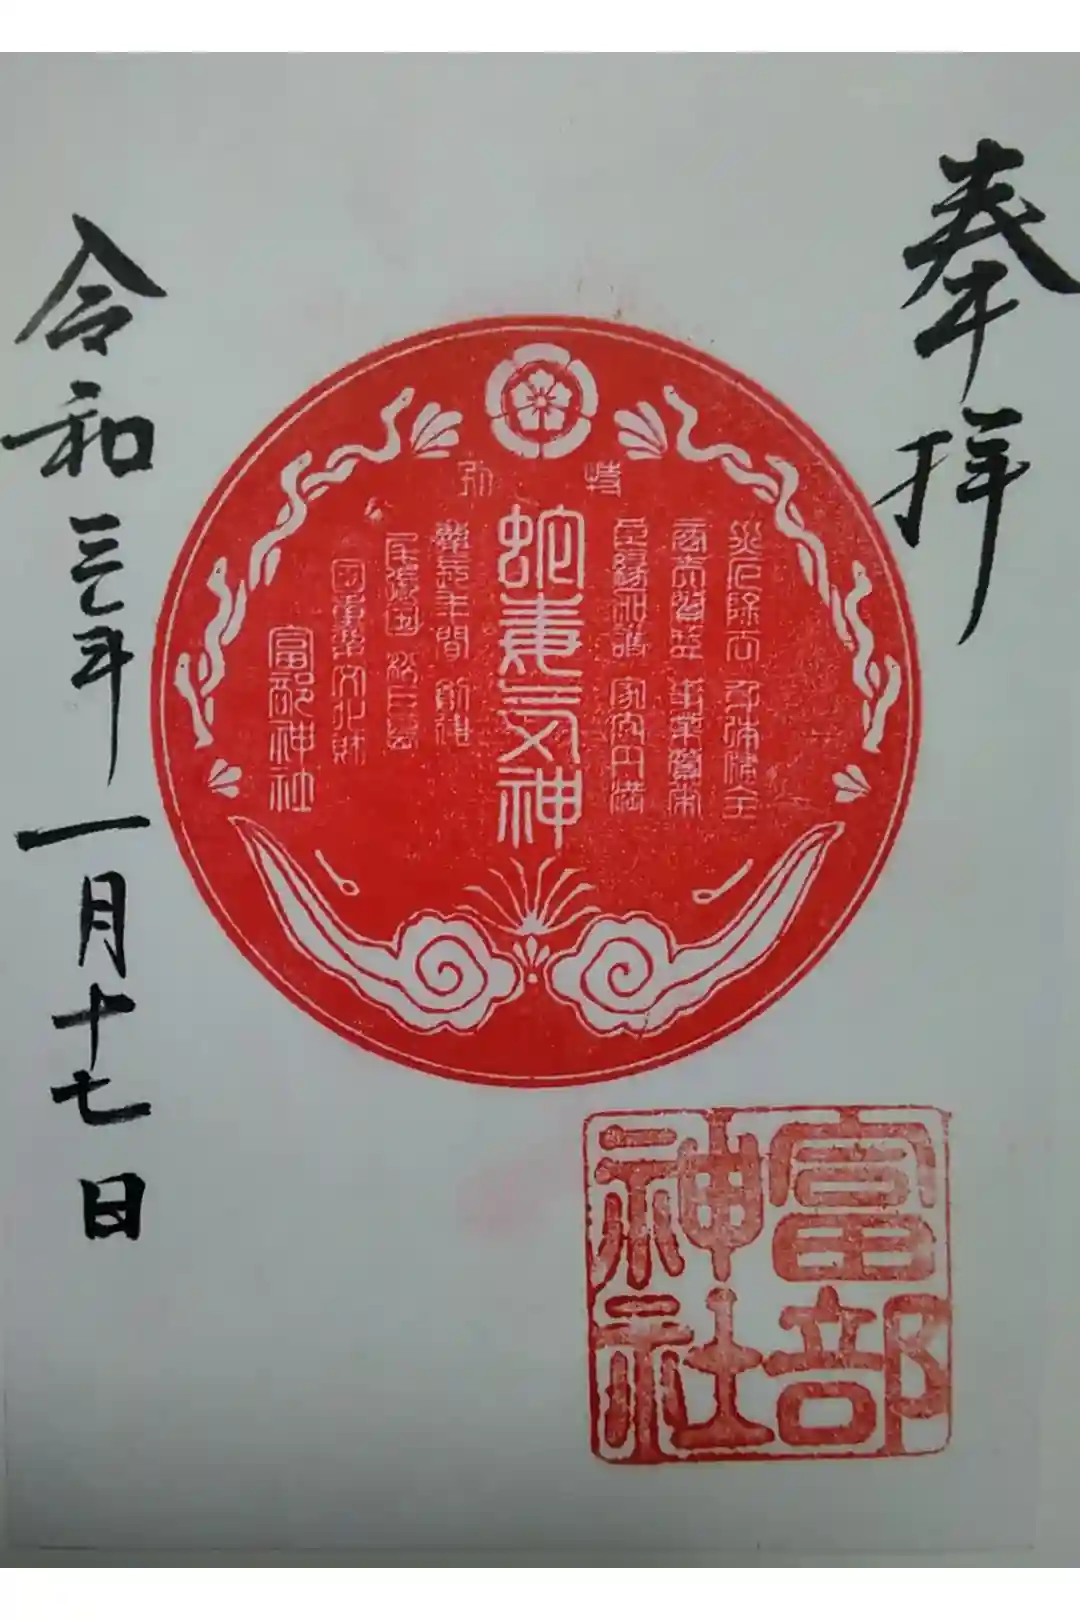 奉拝
特別
災厄除去 身体健全
商売 事業繁栄
良縁和諧 家内円満
蛇毒気神
慶長年間 創建
尾張国 松巨嶋
国重要文化財
富部神社
令和三年 一月十七日
富部
神社